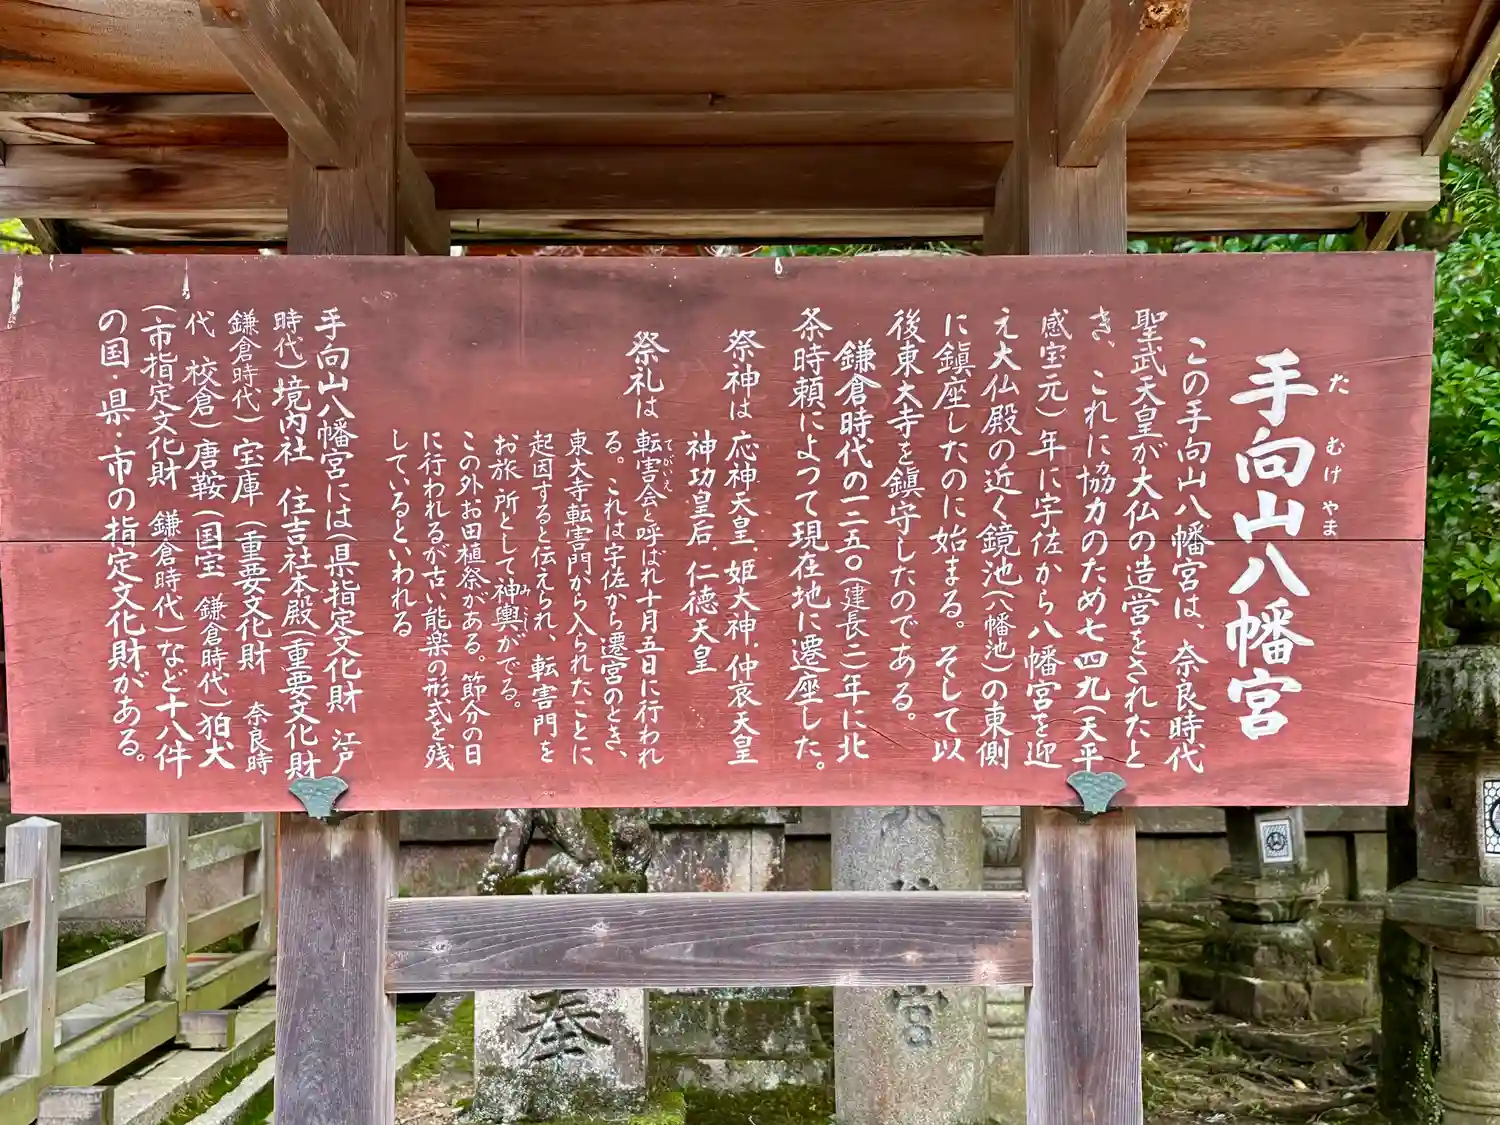 手向山八幡宮
た むけ やま
この手向山八幡宮は、奈良時代
聖武天皇が大仏の造営をされたと
き、これに協力のため七四九(天平
感宝元)年に宇佐から八幡宮を迎
え大仏殿の近く鏡池(八幡池)の東側
に鎮座したのに始まる。そして以
後東大寺を鎮守したのである。
鎌倉時代の一二五〇(建長二)年に北
条時頼によって現在地に遷座した。
祭神は 応神天皇.姫大神.仲哀天皇
神功皇后.仁徳天皇
祭礼は 転害会と呼ばれ十月五日に行われ
てがいえ
る。これは宇佐から遷宮のとき、
東大寺転害門から入られたことに
起因すると伝えられ、転害門を
お旅所として神輿がでる。
みこし
この外お田植祭がある。節分の日
に行われるが古い能楽の形式を残
しているといわれる
手向山八幡宮には(県指定文化財 江戸
時代)境内社 住吉社本殿(重要文化財
鎌倉時代)宝庫(重要文化財 奈良時
代 校倉)唐鞍(国宝 鎌倉時代)狛犬
(市指定文化財 鎌倉時代)など十八件
の国・県・市の指定文化財がある。
奉
宮